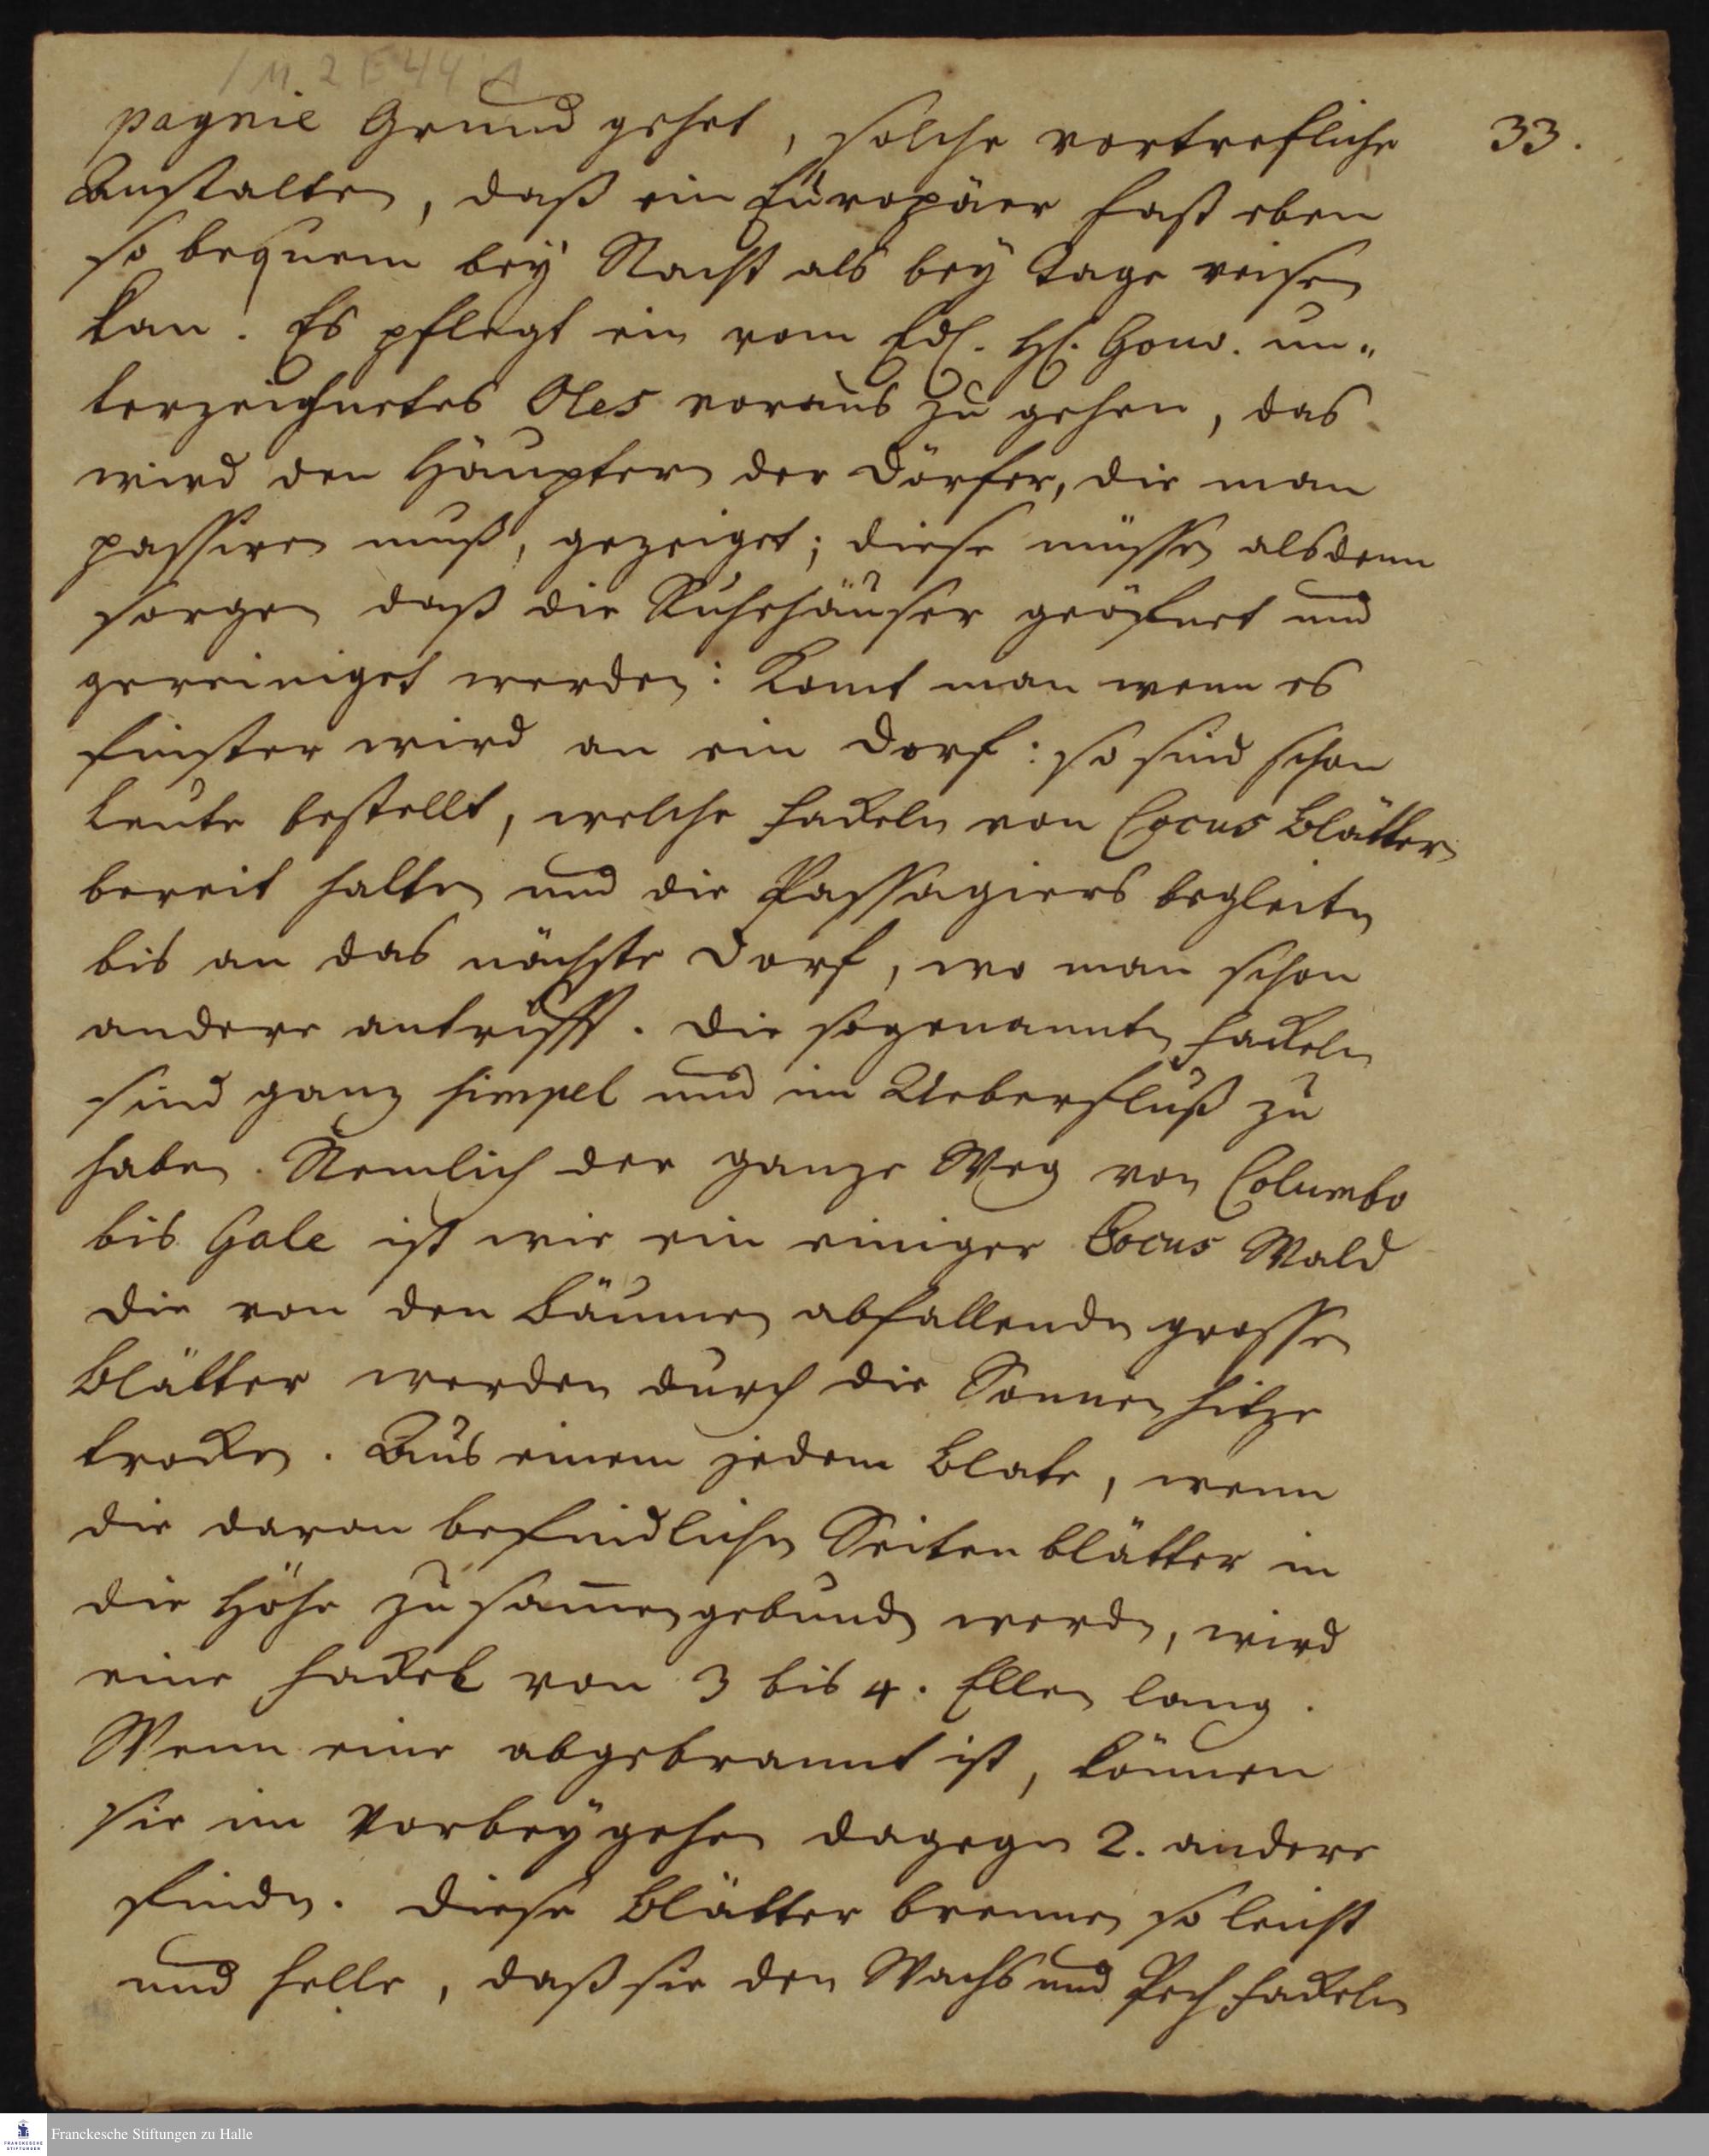 1 M 2 E 44 A
pagnie Grund gehet, solche vortrefliche 33.
Anstalten, daß ein Europäer fast eben
so bequem bey Nacht als bey Tage reisen
kan. Es pflegt ein vom Edl. H. Gouv. un„
terzeichnetes Oles voraus zu gehen, das
wird den Häuptern der Dörfer, die man
passiren muß, gezeiget; diese müssen alsdenn
sorgen daß die Ruhehäuser geöfnet und
gereiniget werden: Komt man wenn es
finster wird an ein Dorf: so sind schon
Leute bestellt, welche Fackeln von Cocus Blättern
bereit halten und die Passagiers begleiten
bis an das nächste Dorf, wo man schon
andere antrifft. Die sogenannten Fackeln
sind ganz simpel und im Ueberfluß zu
haben. Nemlich der ganze Weg von Columbo
bis Gale ist wie ein einiger Cocus Wald
die von den Bäumen abfallenden grossen
Blätter werden durch die Sonnen hitze
trocken. Aus einem jedem Blate, wenn
die daran befindlichen Seiten blätter in
die Höhe zusam̅en gebunden werden, wird
eine Fackel von 3 bis 4. Ellen lang.
Wenn eine abgebrannt ist, können
sie im Vorbeygehen dagegen 2. andere
finden. Diese Blätter brennen so leicht
und helle, daß sie den Wachs und Pech Fackeln
Franckesche Stiftungen zu Halle